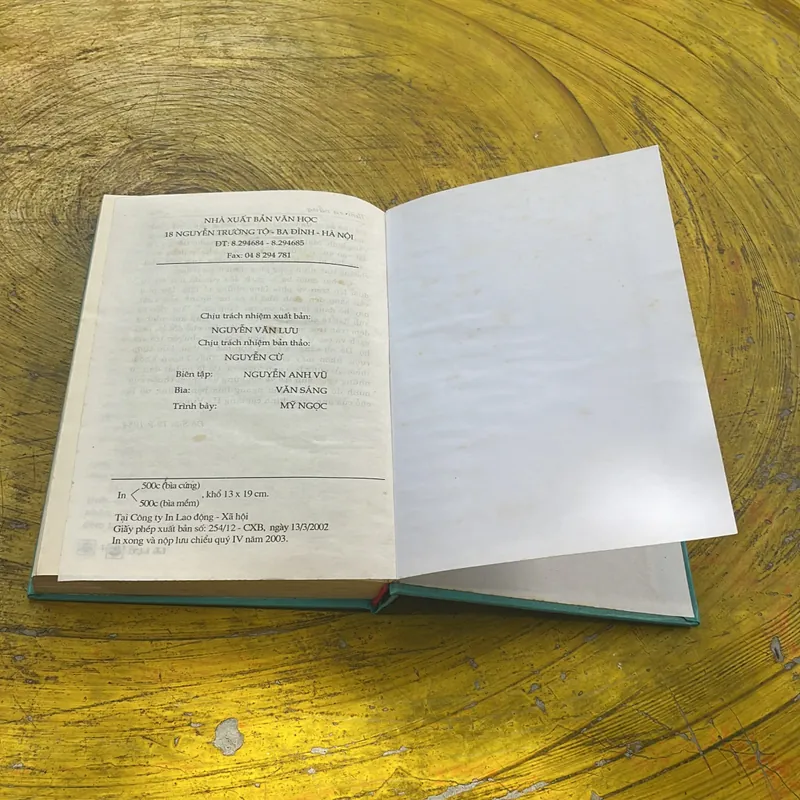 NHÀ XUẤT BẢN VĂN HỌC
18 NGUYỄN TRƯỜNG TỘ - BA ĐÌNH - HÀ NỘI
ĐT: 8.294684 - 8.294685
Fax: 04 8 294 781
Chịu trách nhiệm xuất bản:
NGUYỄN VĂN LƯU
Chịu trách nhiệm bản thảo:
NGUYỄN CỪ
Biên tập: NGUYỄN ANH VŨ
Bìa: VĂN SÁNG
Trình bày: MỸ NGỌC
500c (bìa cứng)
In , khổ 13 x 19 cm.
500c (bìa mềm)
Tại Công ty In Lao động - Xã hội
Giấy phép xuất bản số: 254/12 - CXB, ngày 13/3/2002
In xong và nộp lưu chiểu quý IV năm 2003.